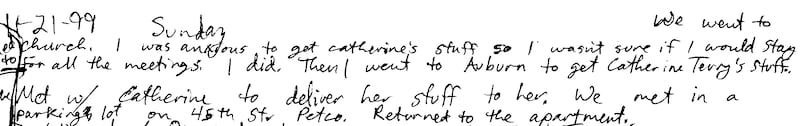 11-21-99 Sunday We went to
church. I was anxious to get catherine's stuff so I wasn't sure if I would stay
for all the meetings. I did. Then I went to Auburn to get Catherine Terry's stuff.
Met w/ Catherine to deliver her stuff to her. We met in a
parking lot on 45th Str. Petco. Returned to the apartment.